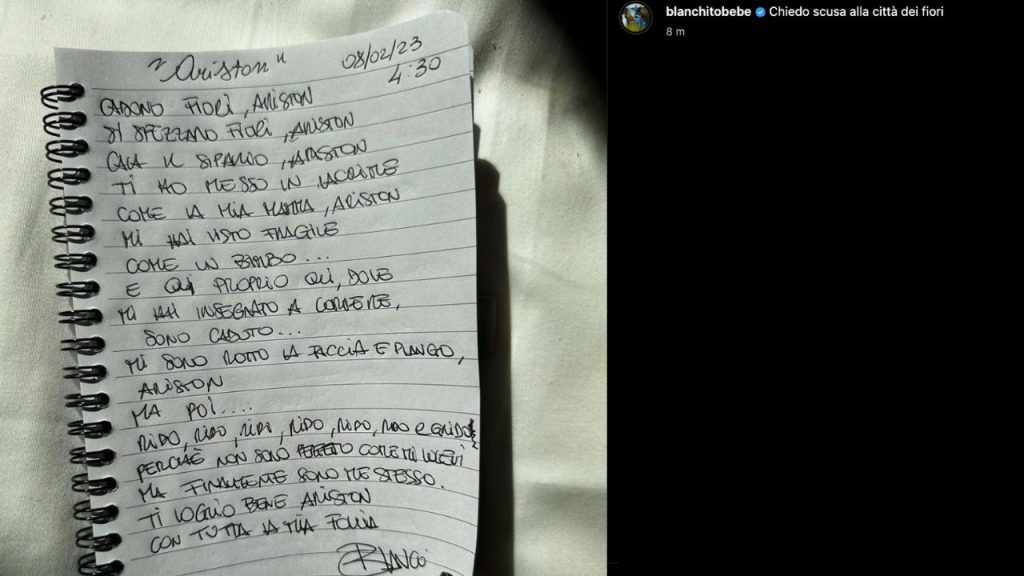 "Ariston"
08/02/23
4:30
CADONO FIORI, ARISTON
SI SPEZZANO FIORI, ARISTON
CALA IL SIPARIO, ARISTON
TI HO MESSO IN LACRIME
COME LA MIA MAMMA, ARISTON
MI HAI VISTO FRAGILE
COME UN BIMBO...
E QUI PROPRIO QUI, DOVE
MI HAI INSEGNATO A CORRERE,
SONO CADUTO...
MI SONO ROTTO LA FACCIA E PIANGO,
ARISTON
MA POI....
RIDO, RIDO, RIDO, RIDO, RIDO, RIDO E GRIDO
PERCHÈ NON SONO PERFETTO COME MI VOLEVI
MA FINALMENTE SONO ME STESSO.
TI VOGLIO BENE ARISTON
CON TUTTA LA MIA FOLLIA
BLANCO
blanchitobebe Chiedo scusa alla città dei fiori
8 m